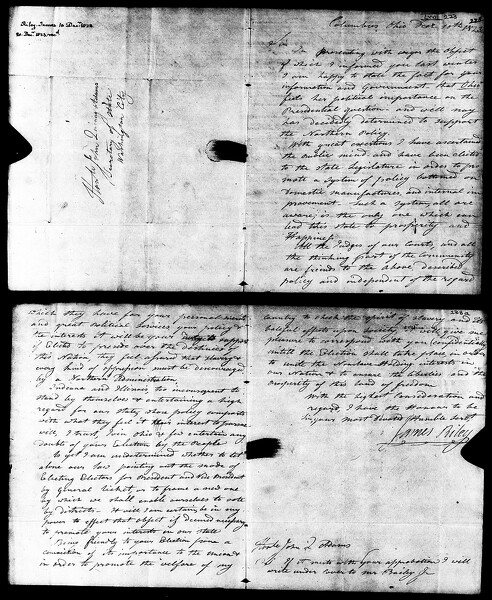 Riley, James 10 Decr 1823
Columbus Ohio Decr 10th 1823
Honble John Quincy Adams
Secretary of State
Washington City
Sir
In presenting with vigor the object
of which I informed you last winter
I am happy to state the fact for your
information and government, that Ohio
feels her political importance on the
Presidential question and will
has decidedly determined to support
the Northern Policy.
With great exertions I have ascertained
the public mind and have been elected
to the state Legislature in order to pro-
mote a system of policy bottomed on
domestic manufactures, and internal im-
provement. Such a system, all are
aware, is the only one which can
lead this state to prosperity and
Happiness
All the Judges of our Courts, and all
the thinking part of the community
are friends to the above described
policy and independent of the regard
which they have for your personal merit
and great political services your policy &
the interests it will be your to support
if Elected to preside over the destinies of
this Nation they feel assured that slavery &
every kind of oppression must be discouraged
by a Northern Administration.
Indiana and Illinois too incongruent to
stand by themselves & entertaining a high
regard for our state, whose policy comports
with what they feel it their interest to pursue
will, I trust, Join Ohio & few entertain any
doubt of your Election by the People
As yet I am undetermined whether to let
alone our law pointing out the mode of
Electing Electors for President and Vice President
by general ticket, or to frame a new one
by which we shall enable ourselves to vote
by districts. It will I am certain, be in my
power to effect that object if deemed necessary
to promote your interests in our state
Being friendly to your Election from a
conviction of its importance to the union &
in order to promote the welfare of my
Country to check the spirit of slavery and its
baleful effects upon society, it will give me
pleasure to correspond with you (confidentially)
untill the Election shall take place in order
to unite the Nonslave Holding interests in
our Nation & to ensure the liberties and the
Prosperity of this land of freedom.
With the highest Consideration and
regard I have the Honour to be
Sir your most Devoted & Humble Servt
James Riley
Honble John Q Adams
If it meets with your approbation I will
write under cover to Mr Bailey Jr